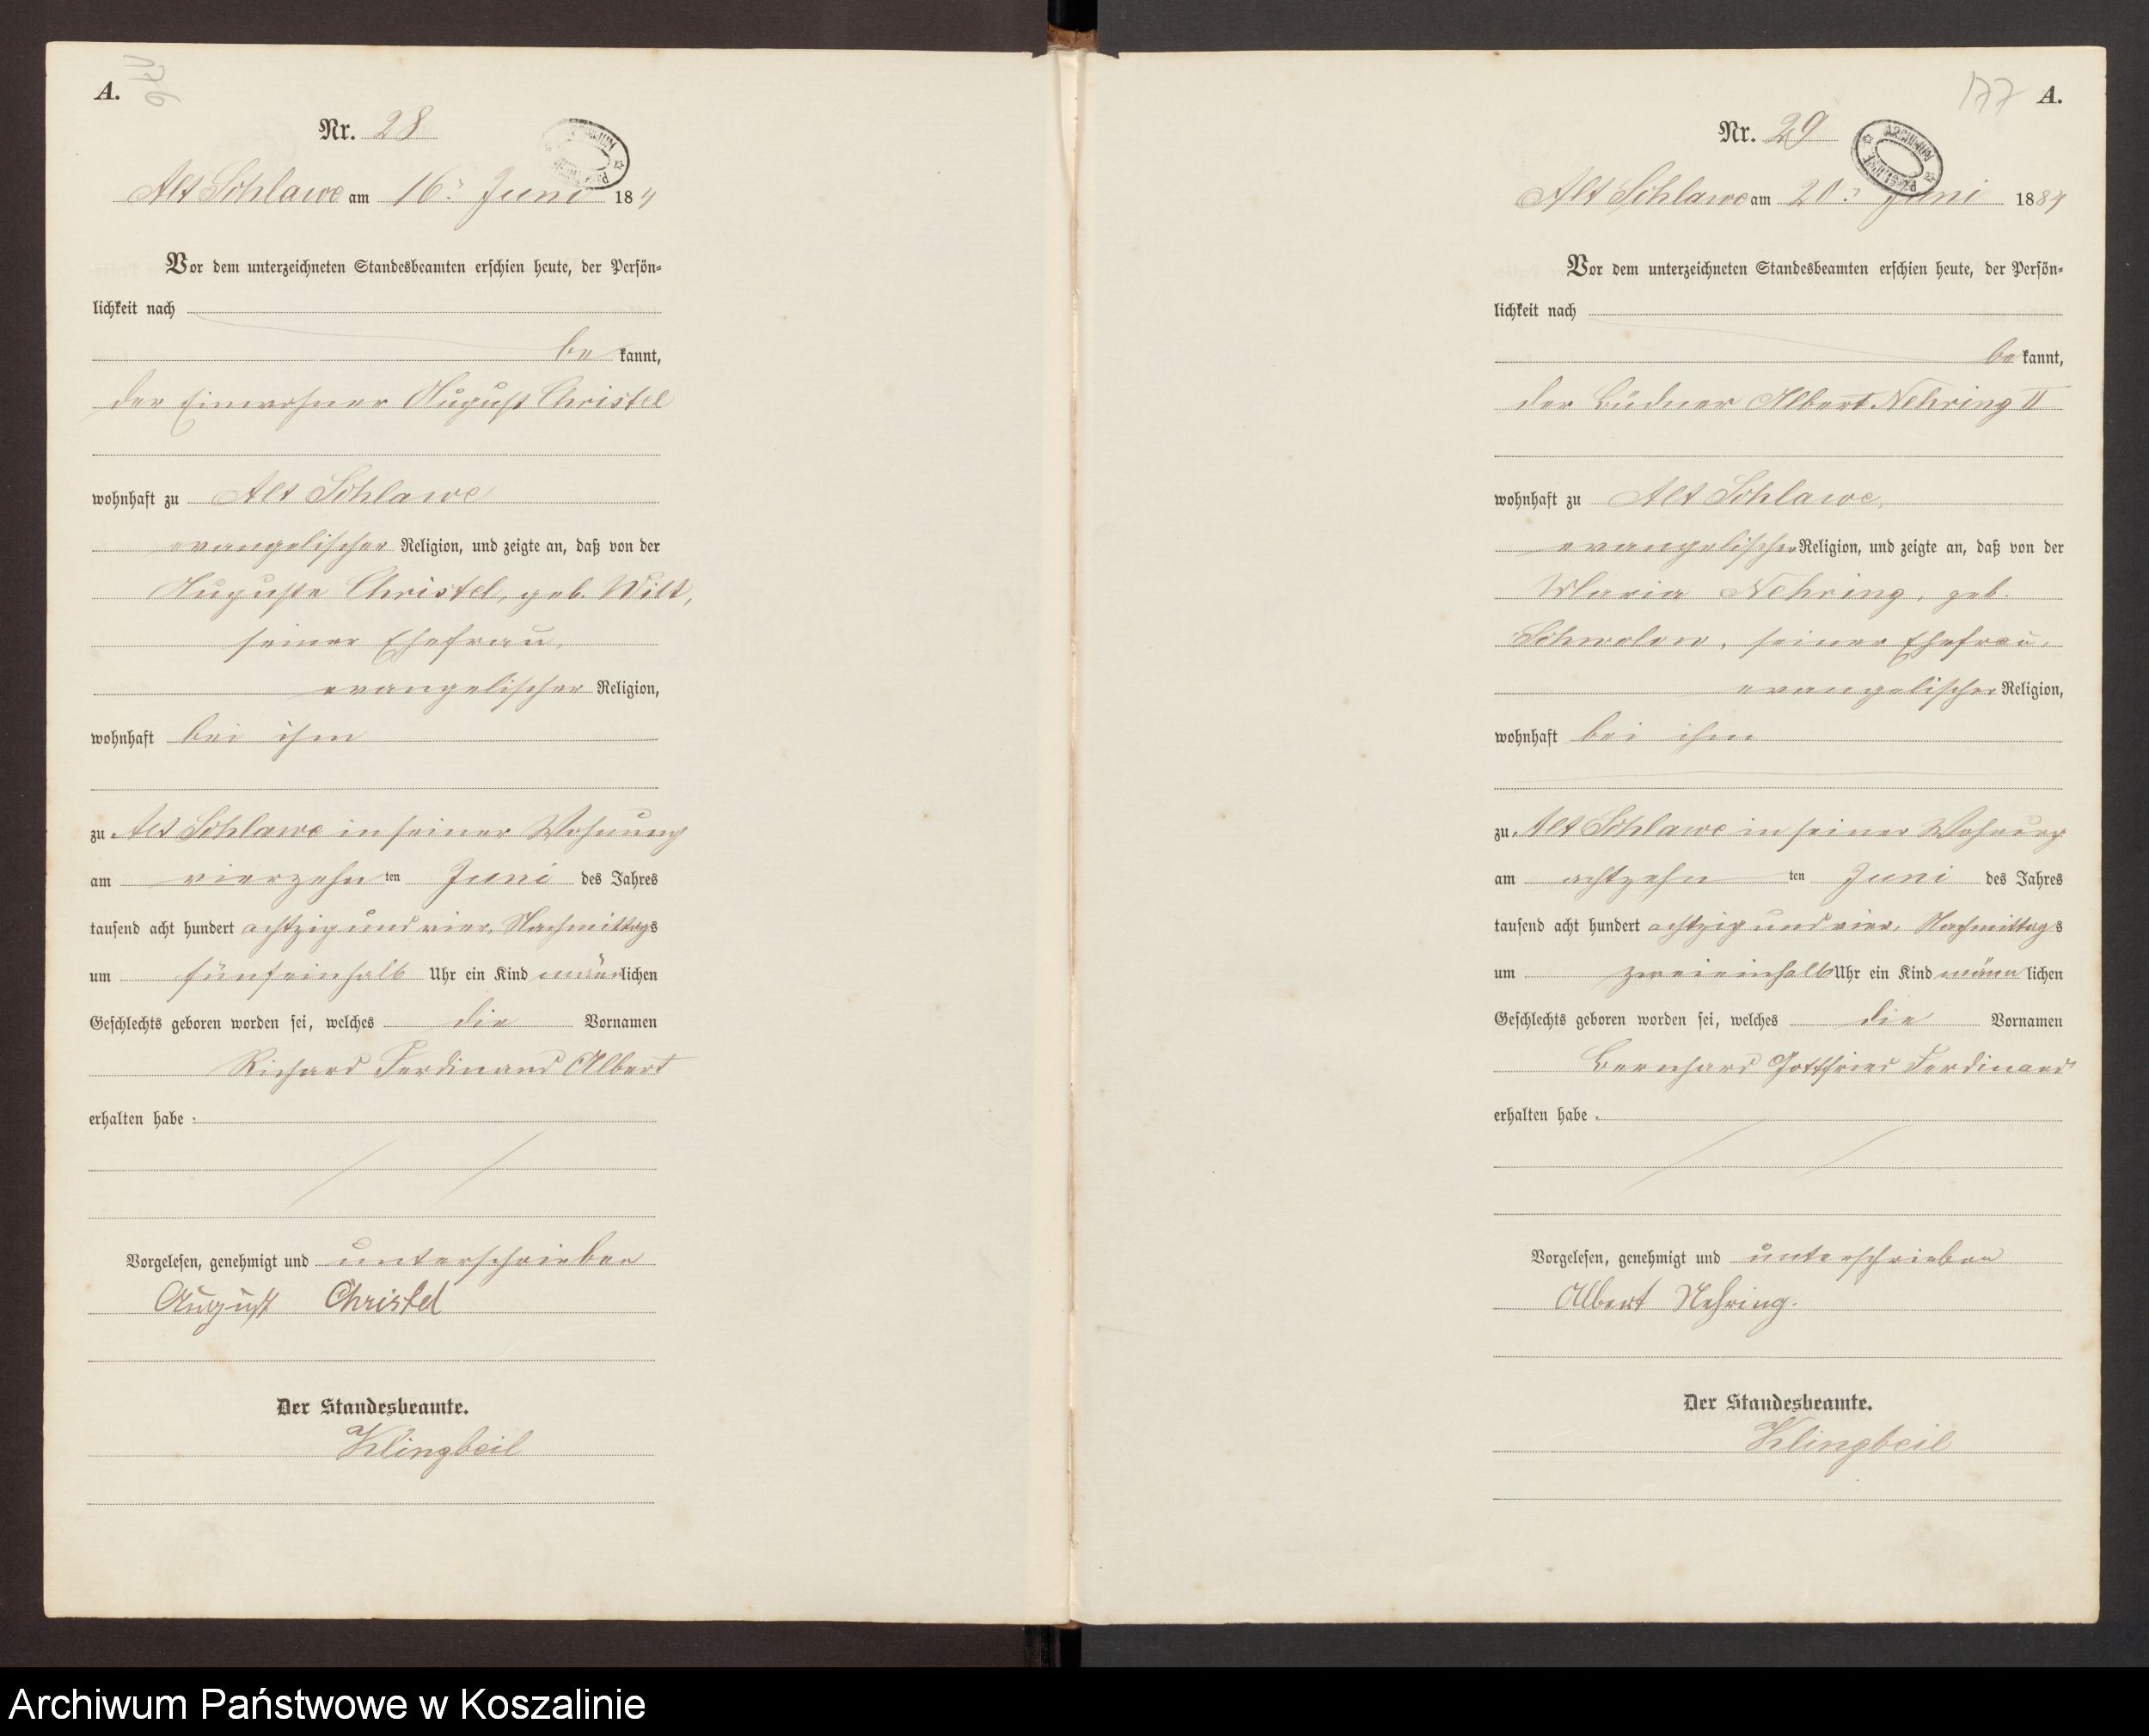 A.
Nr. 28
Alt Schlawe am 16. Juni 184
Vor dem unterzeichneten Standesbeamten erschien heute, der Persön-
lichkeit nach
be kannt,
der Einwohner August Christel
wohnhaft zu Alt Schlawe
evangelischer Religion, und zeigte an, daß von der
Auguste Christel, geb. Wilk,
seiner Ehefrau,
evangelischer Religion,
wohnhaft bei ihm
zu Alt Schlawe in seiner Wohnung
am vierzehn ten Juni des Jahres
tausend acht hundert achtzig und vier, Nachmittags
um fünfeinhalb Uhr ein Kind männlichen
Geschlechts geboren worden sei, welches die Vornamen
Richard Ferdinand Albert
erhalten habe.
Vorgelesen, genehmigt und unterschrieben
August Christel
Der Standesbeamte.
Klingbeil
177
A.
Nr. 29
ARCHIWUM
Alt Schlawe am 20. Juni 1884
Vor dem unterzeichneten Standesbeamten erschien heute, der Persön-
lichkeit nach
be kannt,
der Büdner Albert Nehring II
wohnhaft zu Alt Schlawe,
evangelischer Religion, und zeigte an, daß von der
Maria Nehring, geb.
Schwolow, seiner Ehefrau,
evangelischer Religion,
wohnhaft bei ihm
zu Alt Schlawe in seiner Wohnung
am achtzehn ten Juni des Jahres
tausend acht hundert achtzig und vier, Nachmittags
um zweieinhalb Uhr ein Kind männ lichen
Geschlechts geboren worden sei, welches die Vornamen
Bernhard Gottfried Ferdinand
erhalten habe.
Vorgelesen, genehmigt und unterschrieben
Albert Nehring.
Der Standesbeamte.
Klingbeil
Archiwum Państwowe w Koszalinie